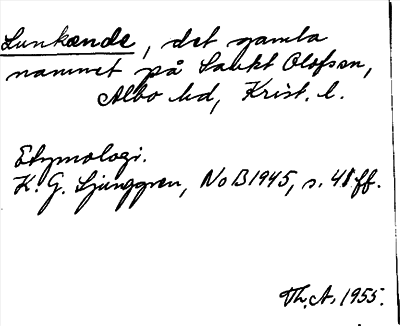 Lunkende, det gamla
namnet på Sankt Olofsen,
Albo hd, Krist. l.
Etymologi.
K. G. Ljunggren, NoB 1945, s. 48 ff.
Th. A. 1955.